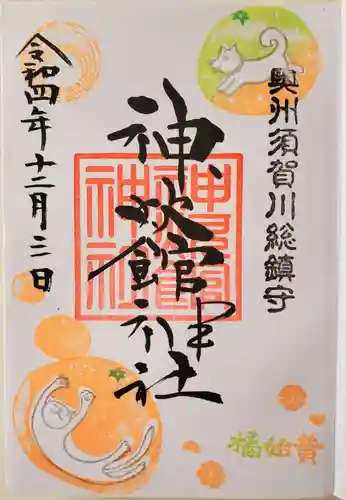 奥州須賀川総鎮守
神炊館神社
神炊館神社
令和四年十二月三日
橘始黄